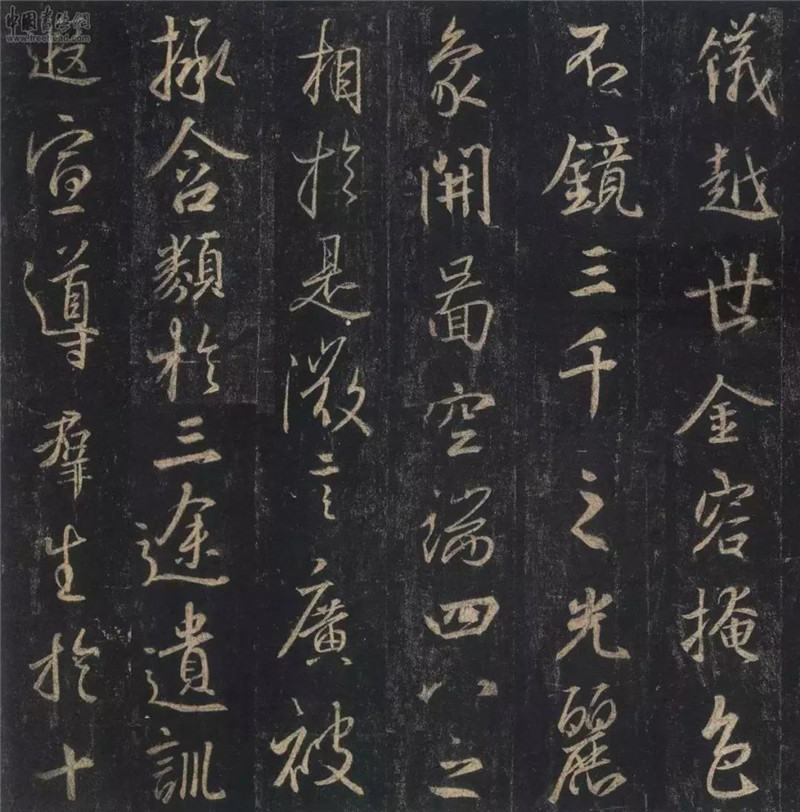 儀越世金容掩色
不鏡三千之光麗
象開圖空端四八之
相於是微言廣被
拯含類於三途遺訓
遐宣導羣生於十
中国書法网